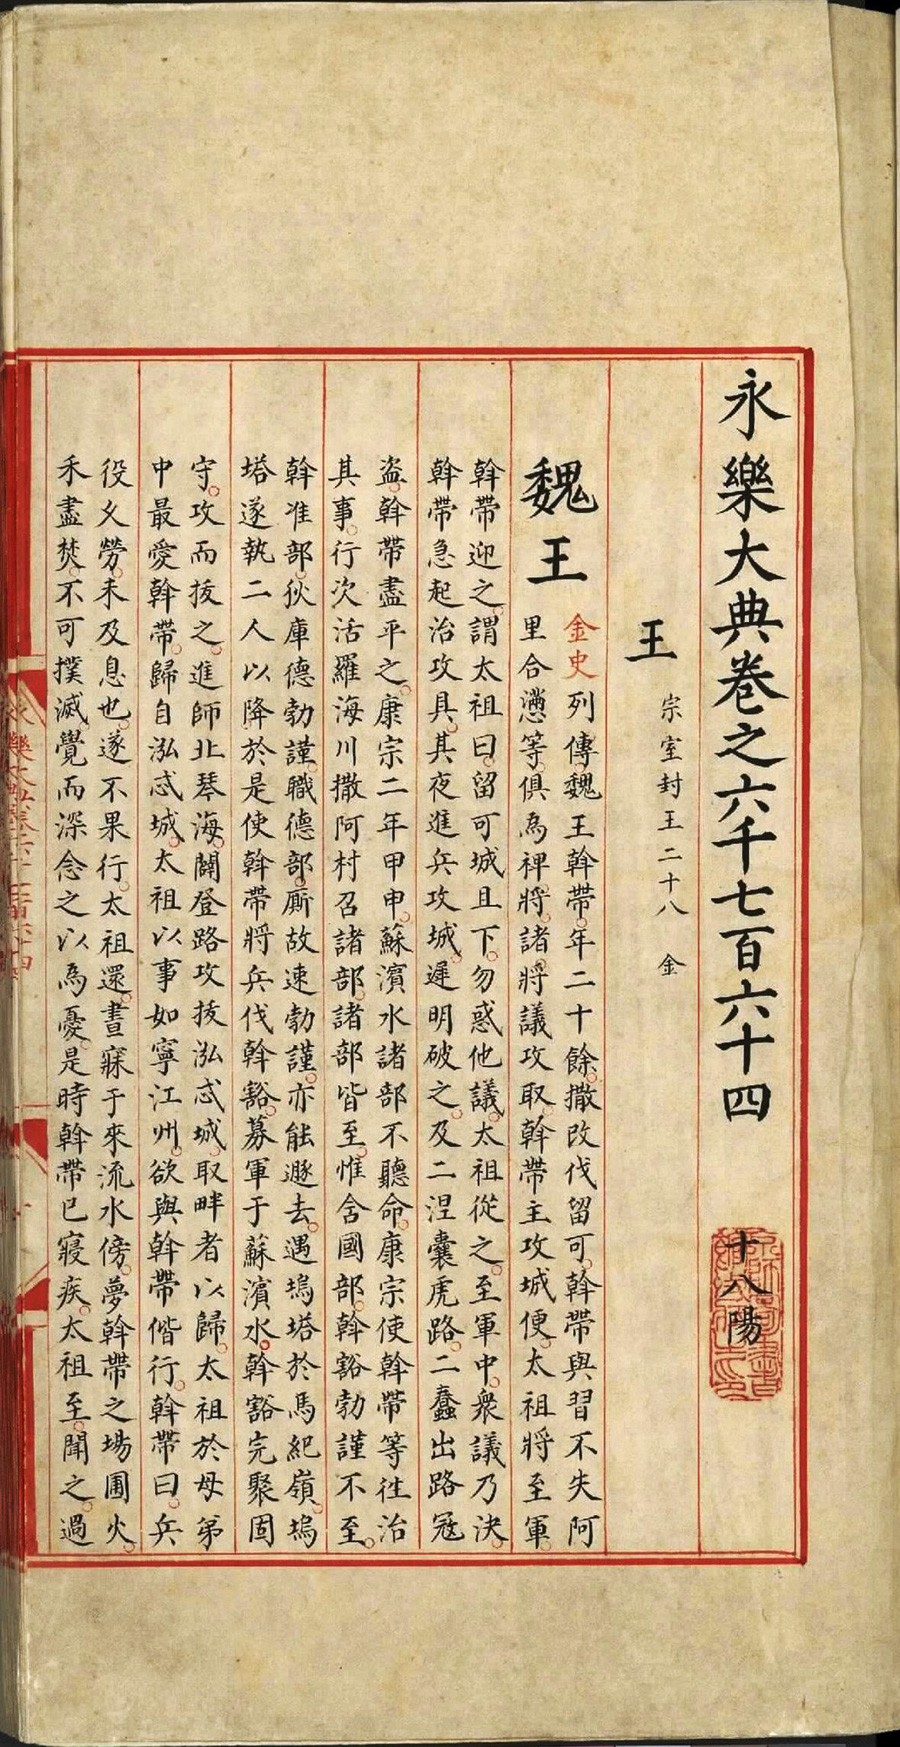 永樂大典卷之六千七百六十四 十八陽
王 宗室封王二十八 金
魏王
金史列傳魏王斡帶年二十餘撒改伐留可斡帶與習不失阿
里合懣等俱為裨將諸將議攻取斡帶主攻城便太祖將至軍
斡帶迎之謂太祖曰留可城且下勿惑他議太祖從之至軍中衆議乃決
斡帶急起治攻具其夜進兵攻城遲明破之及二涅囊虎路二蠢出路冦
盗斡帶盡平之康宗二年甲申蘇濱水諸部不聽命康宗使斡帶等徃治
其事行次活羅海川撒阿村召諸部諸部皆至惟含國部斡豁勃謹不至
斡准部狄庫德勃謹職德部厮故速勃謹亦能遯去遇塢塔於馬紀嶺塢
塔遂執二人以降於是使斡帶將兵伐斡豁募軍于蘇濱水斡豁完聚固
守攻而拔之進師北琴海闢登路攻拔泓忒城取畔者以歸太祖於母弟
中最愛斡帶歸自泓忒城太祖以事如寧江州欲與斡帶偕行斡帶曰兵
役乆勞未及息也遂不果行太祖還晝寐于來流水傍夢斡帶之場圃火
禾盡焚不可撲滅覺而深念之以為憂是時斡帶已寢疾太祖至聞之過